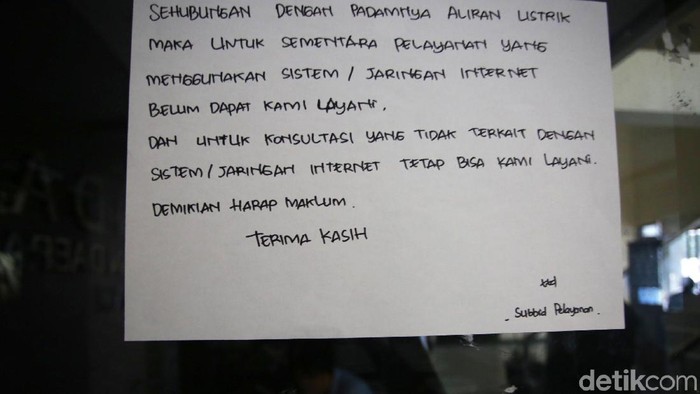 SEHUBUNGAN DENGAN PADAMNYA ALIRAN LISTRIK
MAKA UNTUK SEMENTARA PELAYANAN YANG
MENGGUNAKAN SISTEM / JARINGAN INTERNET
BELUM DAPAT KAMI LAYANI.
DAN UNTUK KONSULTASI YANG TIDAK TERKAIT DENGAN
SISTEM/JARINGAN INTERNET TETAP BISA KAMI LAYANI.
DEMIKIAN HARAP MAKLUM.
TERIMA KASIH
ttd
- Subbid Pelayanan -
detikcom